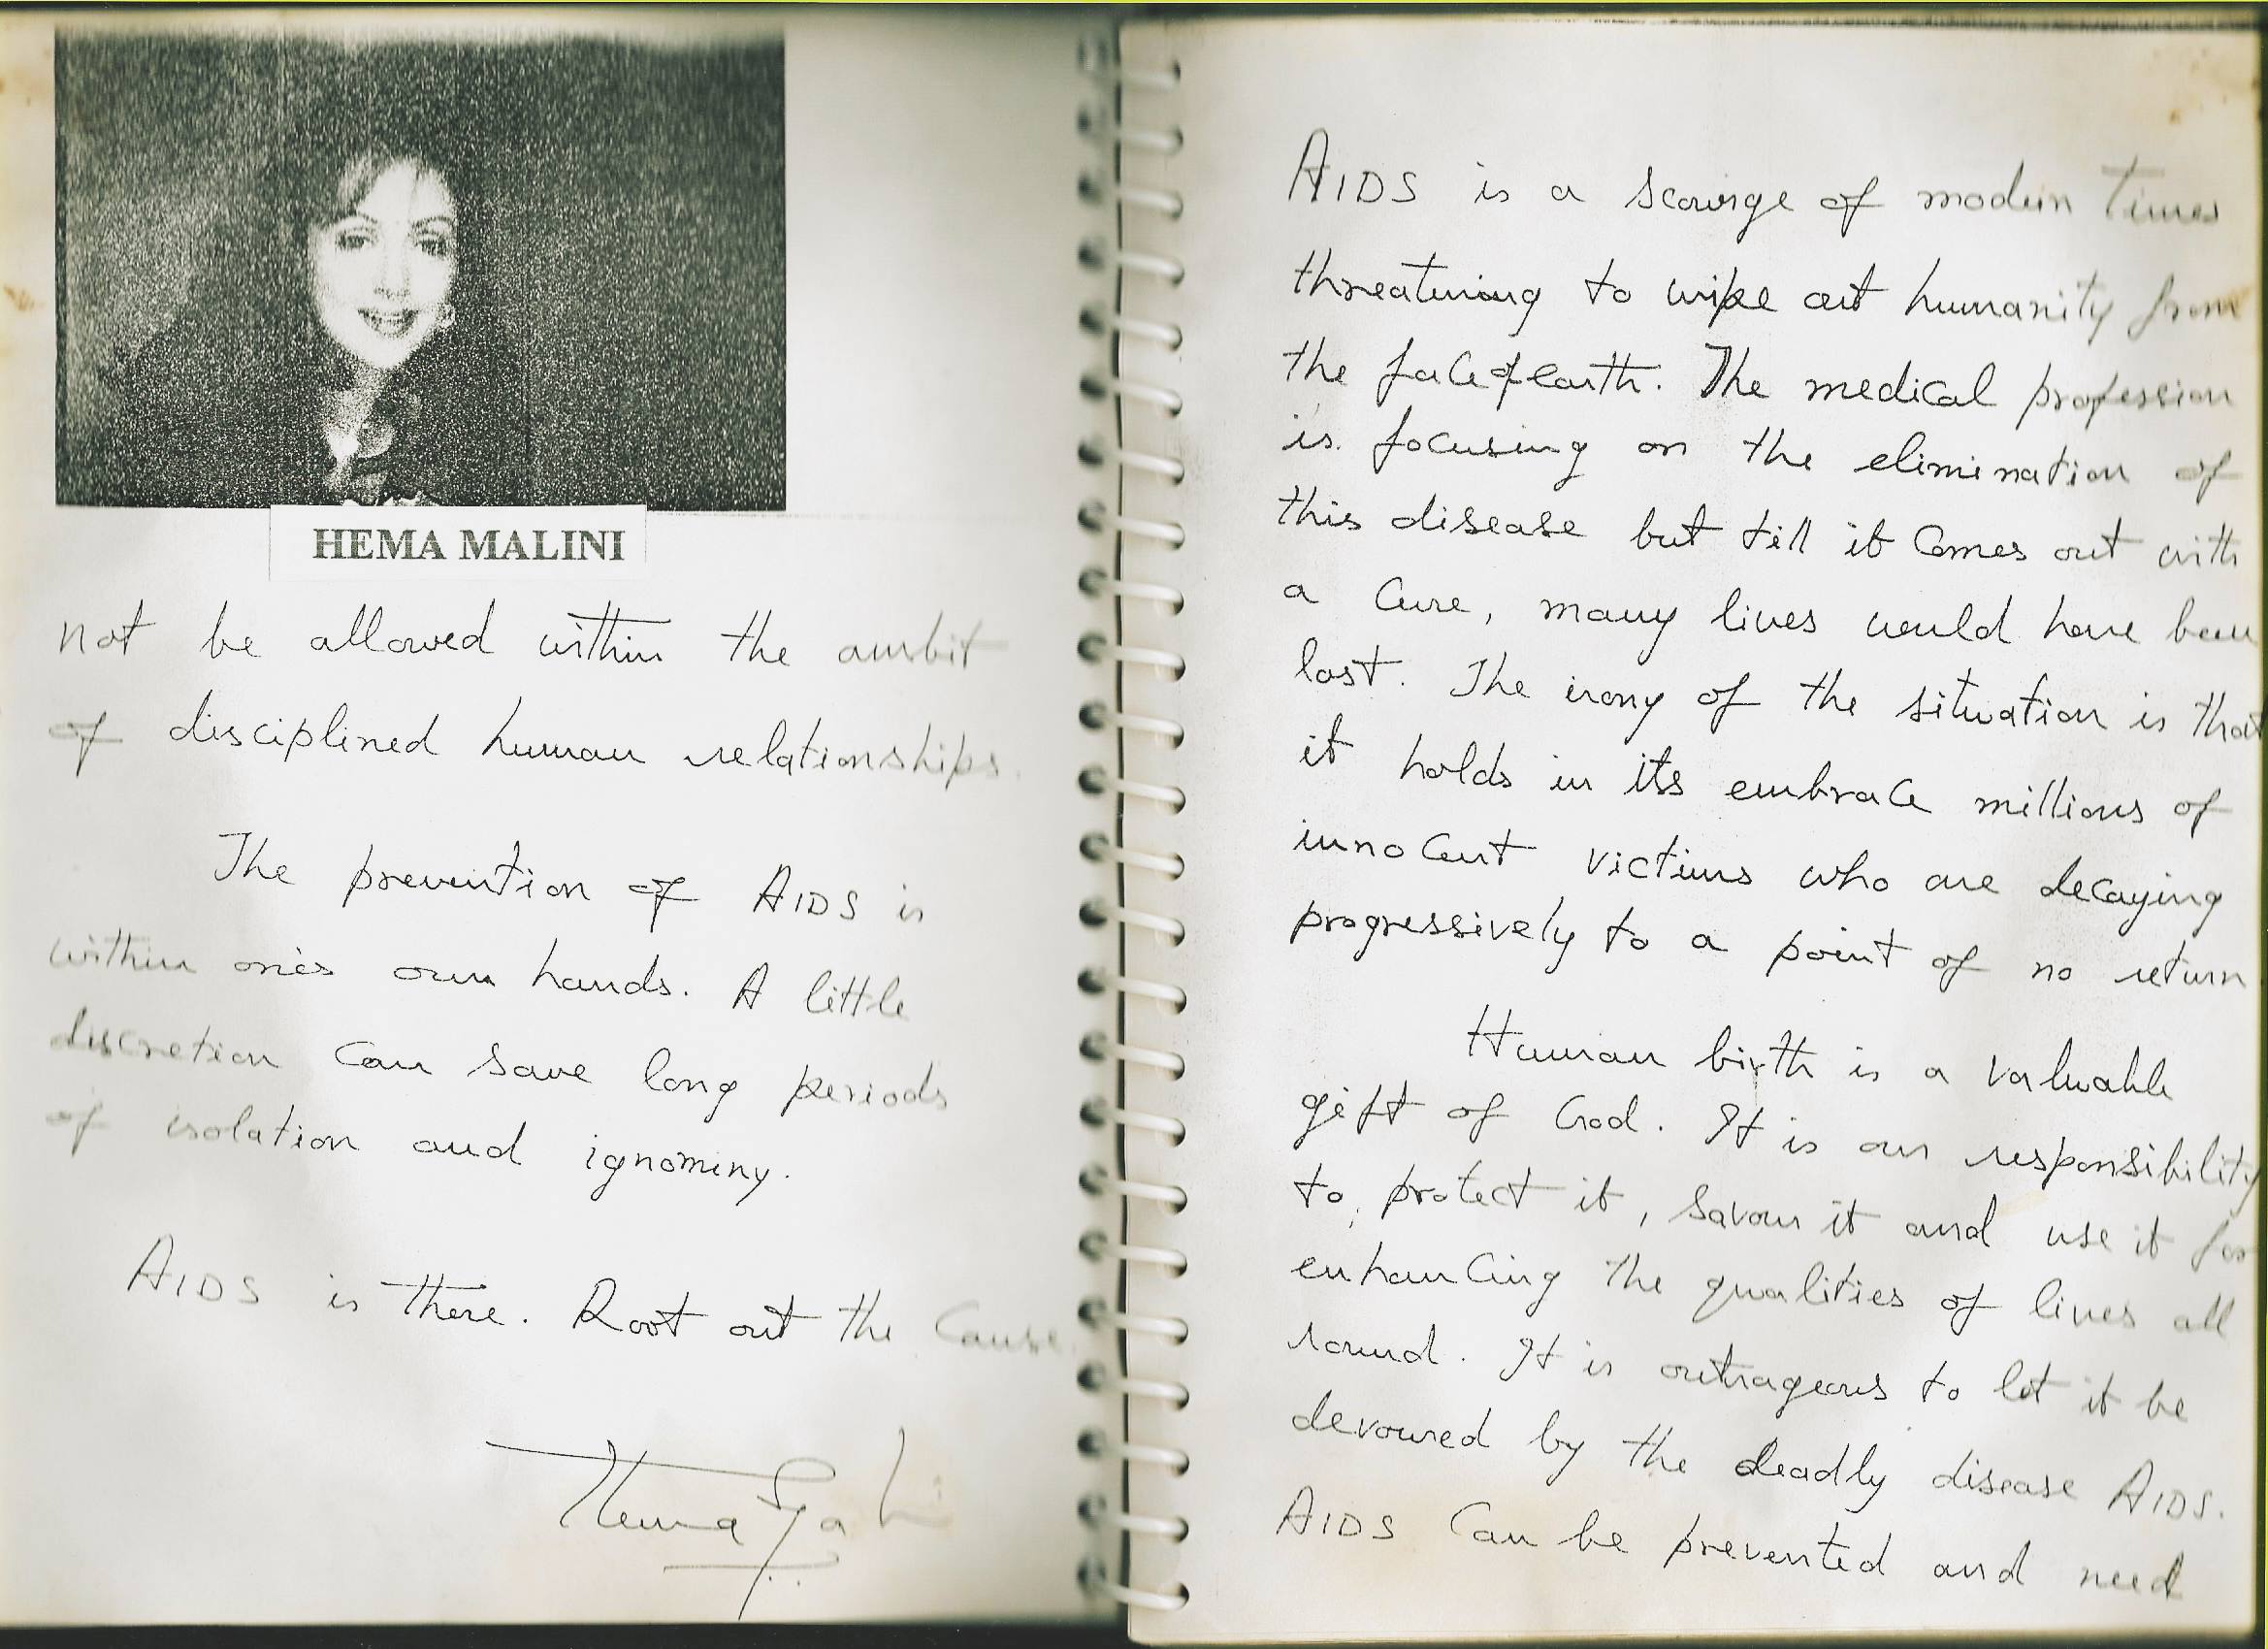 HEMA MALINI
not be allowed within the ambit
of disciplined human relationships.
The prevention of AIDS is
within one's own hands. A little
discretion can save long periods
of isolation and ignominy.
AIDS is there. Root out the cause
Hema
AIDS is a scourge of modern times
threatening to wipe out humanity from
the face of earth. The medical profession
is focusing on the elimination of
this disease but till it comes out with
a cure, many lives would have been
lost. The irony of the situation is that
it holds in its embrace millions of
innocent victims who are decaying
progressively to a point of no return
Human birth is a valuable
gift of God. It is our responsibility
to, protect it, savour it and use it for
enhancing the qualities of lives all
round. It is outrageous to let it be
devoured by the deadly disease AIDS.
AIDS can be prevented and need